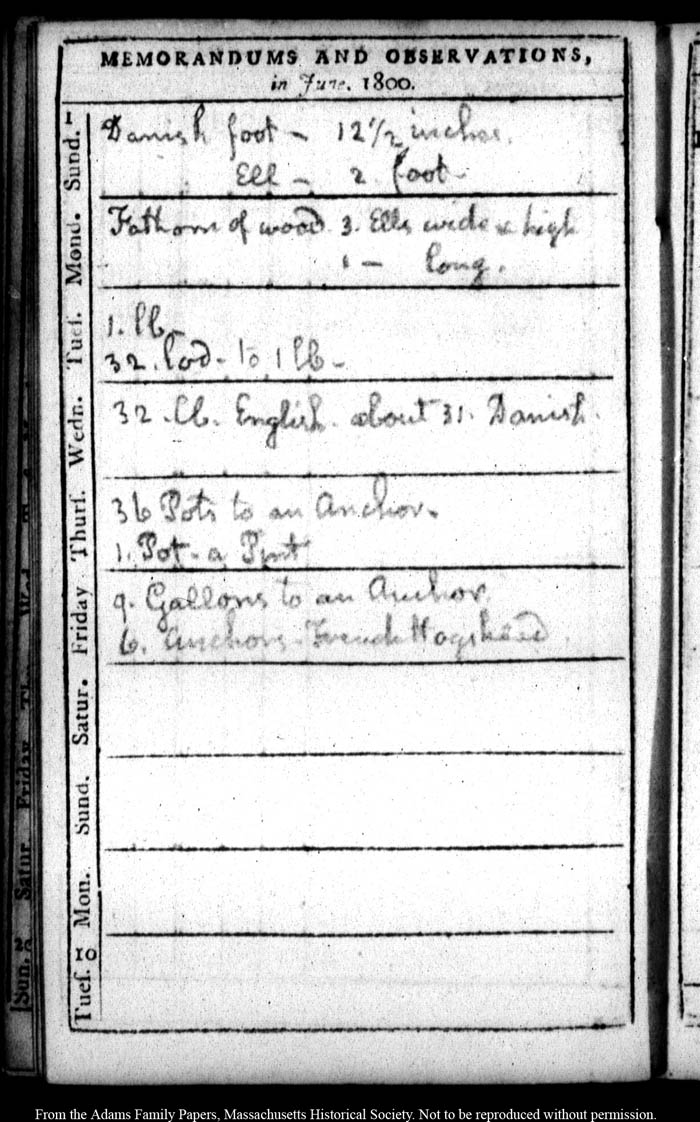 MEMORANDUMS AND OBSERVATIONS,
in June. 1800.
Sund. 1
Danish foot - 12 1/2 inches.
Ell - 2 foot -
Mond.
Fathom of wood 3. Ells wide & high
1 - long.
Tues.
1. lb -
32. Lod - to 1 lb -
Wedn.
32 lb. English about 31. Danish.
Thurs.
36 Pots to an Anchor.
1. Pot - a Pint
Friday
9. Gallons to an Anchor.
6. Anchors - French Hogshead.
Satur.
Sund.
Mon.
Tues. 10
Sun. 29
Satur
Friday
From the Adams Family Papers, Massachusetts Historical Society. Not to be reproduced without permission.